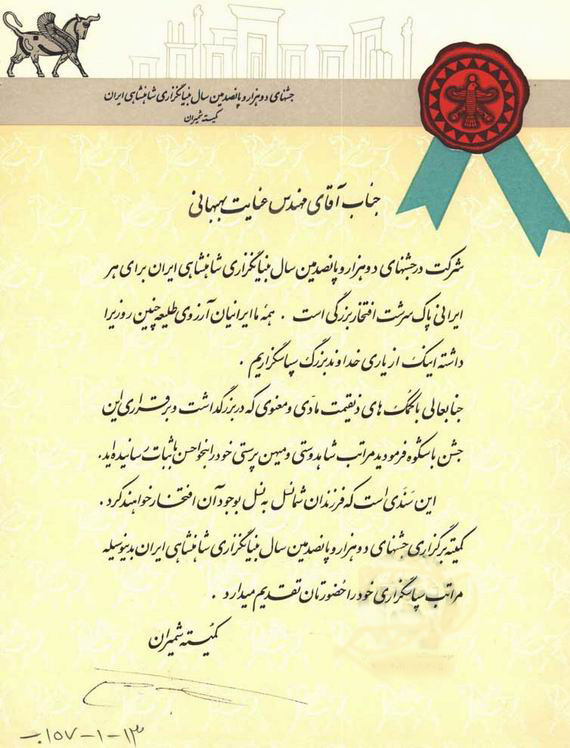 جشنهای دو هزار و پانصدمین سال بنیانگزاری شاهنشاهی ایران
کمیته شمیران
جناب آقای مهندس عنایت بهبهانی
شرکت در جشنهای دو هزار و پانصدمین سال بنیانگزاری شاهنشاهی ایران برای هر
ایرانی پاک سرشت افتخار بزرگی است . همه ما ایرانیان آرزوی طلیعه چنین روزیرا
داشته اینک از یاری خداوند بزرگ سپاسگزاریم .
جنابعالی با کمک های ذیقیمت مادی و معنوی که در بزرگداشت و برقراری این
جشن باشکوه فرمودید مراتب شاهدوستی و میهن پرستی خود را بنحو احسن باثبات رسانیده اید.
این سندی است که فرزندان شما نسل به نسل بوجود آن افتخار خواهند کرد .
کمیته برگزاری جشنهای دو هزار و پانصدمین سال بنیانگزاری شاهنشاهی ایران بدینوسیله
مراتب سپاسگزاری خود را حضورتان تقدیم میدارد .
کمیته شمیران
۱۵۷-۱-۱۳